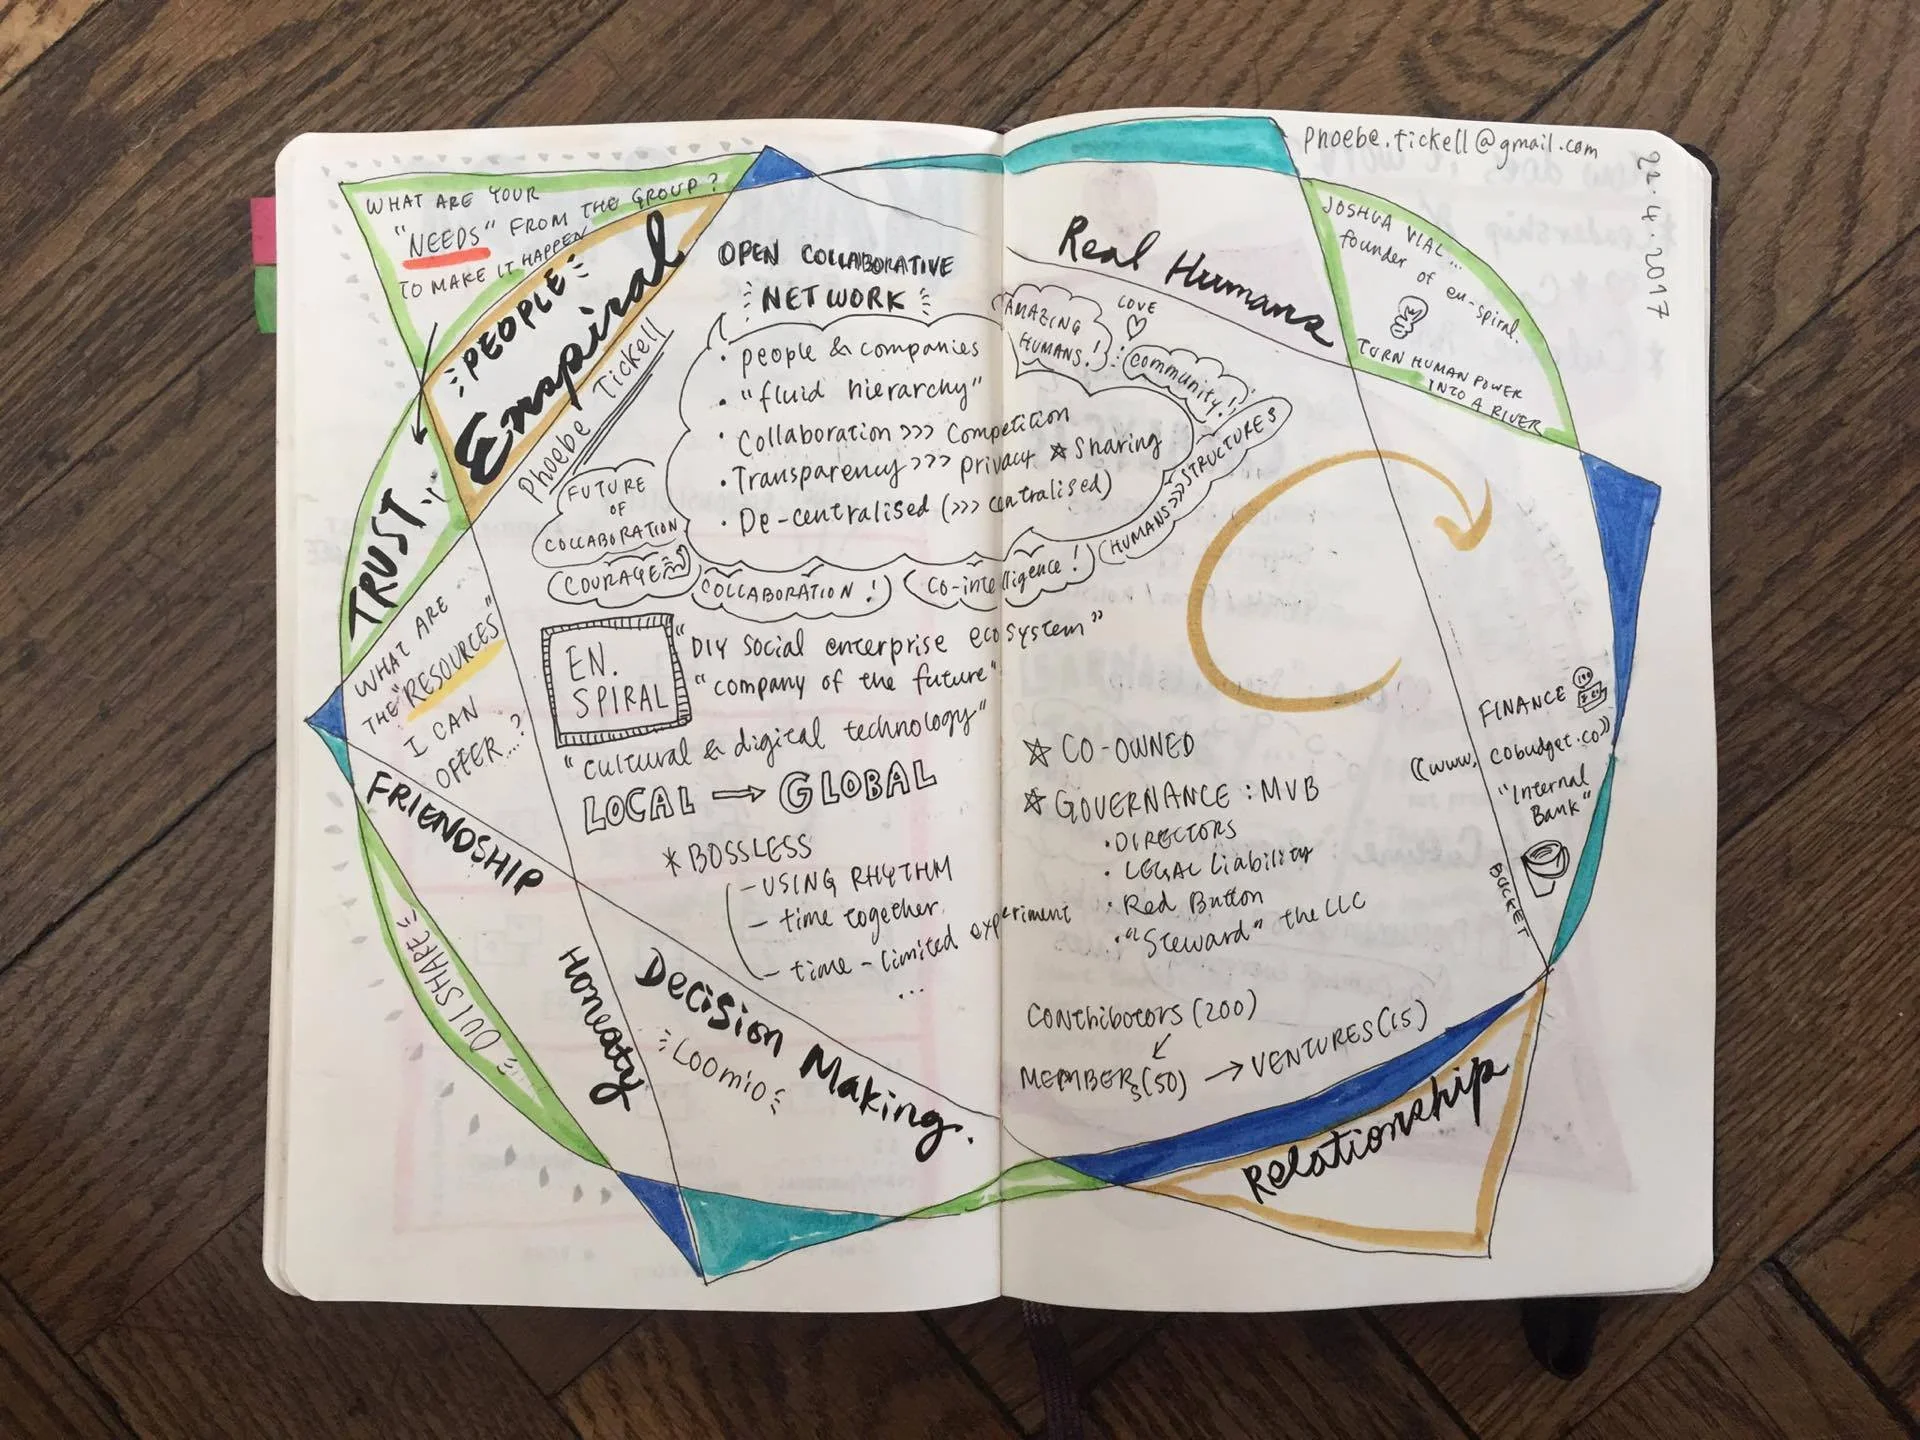 WHAT ARE YOUR
"NEEDS" FROM THE GROUP?
TO MAKE IT HAPPEN
PEOPLE
Enspiral
Phoebe Tickell
TRUST
WHAT ARE
THE "RESOURCES"
I CAN
OFFER...?
FRIENDSHIP
OUISHARE
Honesty
Decision Making.
Loomio
OPEN COLLABORATIVE
NETWORK
• people & companies
• "fluid hierarchy"
• Collaboration >>> Competition
• Transparency >>> privacy ☆ Sharing
• De-centralised (>>> centralised)
FUTURE
OF
COLLABORATION
COURAGE
COLLABORATION!
CO-intelligence!
HUMANS >>> STRUCTURES
Community!!
AMAZING
HUMANS!
LOVE
EN.
SPIRAL
"DIY social enterprise ecosystem"
"company of the future"
"cultural & digital technology"
LOCAL → GLOBAL
* BOSSLESS
- USING RHYTHM
- time together
- time-limited experiment
...
Real Humans
phoebe.tickell@gmail.com
22.4.2017
JOSHUA VIAL...
founder of en-spiral.
TURN HUMAN POWER
INTO A RIVER
☆ CO-OWNED
☆ GOVERNANCE: MVB
• DIRECTORS
• LEGAL Liability
• Red Button
• "Steward" the LLC
FINANCE
((www. cobudget.co))
"Internal
Bank"
BUCKET
Contributors (200)
MEMBERS (50) → VENTURES (15)
Relationship